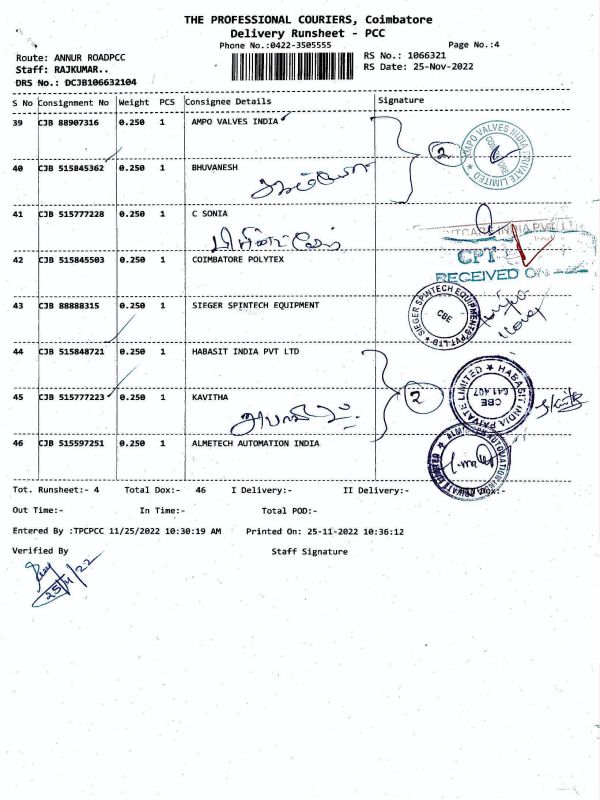 THE PROFESSIONAL COURIERS, Coimbatore
Delivery Runsheet - PCC
Phone No.:0422-3505555 Page No.:4
Route: ANNUR ROADPCC RS No.: 1066321
Staff: RAJKUMAR.. RS Date: 25-Nov-2022
DRS No.: DCJB106632104
S No Consignment No Weight PCS Consignee Details Signature
39 CJB 88907316 0.250 1 AMPO VALVES INDIA
2 AMPO VALVES INDIA PRIVATE LIMITED
40 CJB 515845362 0.250 1 BHUVANESH
41 CJB 515777228 0.250 1 C SONIA
42 CJB 515845503 0.250 1 COIMBATORE POLYTEX
CPT
RECEIVED ON
43 CJB 88888315 0.250 1 SIEGER SPINTECH EQUIPMENT
SIEGER SPINTECH EQUIPMENTS PVT LTD CBE
44 CJB 515848721 0.250 1 HABASIT INDIA PVT LTD
45 CJB 515777223 0.250 1 KAVITHA
2 HABASIT INDIA PRIVATE LIMITED CBE 641 407
46 CJB 515597251 0.250 1 ALMETECH AUTOMATION INDIA
Tot. Runsheet:- 4 Total Dox:- 46 I Delivery:- II Delivery:- Dox:-
Out Time:- In Time:- Total POD:-
Entered By :TPCPCC 11/25/2022 10:30:19 AM Printed On: 25-11-2022 10:36:12
Verified By Staff Signature
25/11/22